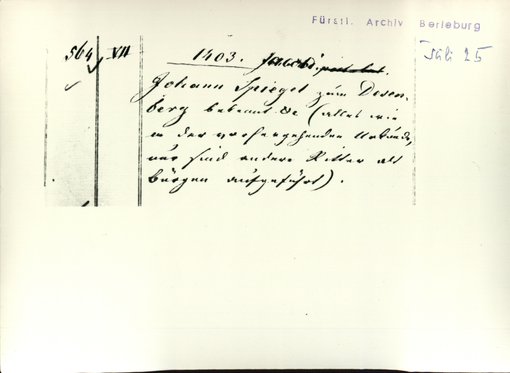 Fürstl. Archiv Berleburg
Juli 25
564 VII
1403. Jacobi
Johann Spiegel zum Desen-
berg bekennt etc (alles wie
in der vorhergehenden Urkunde,
nur sind andere Ritter als
Bürgen aufgeführt).